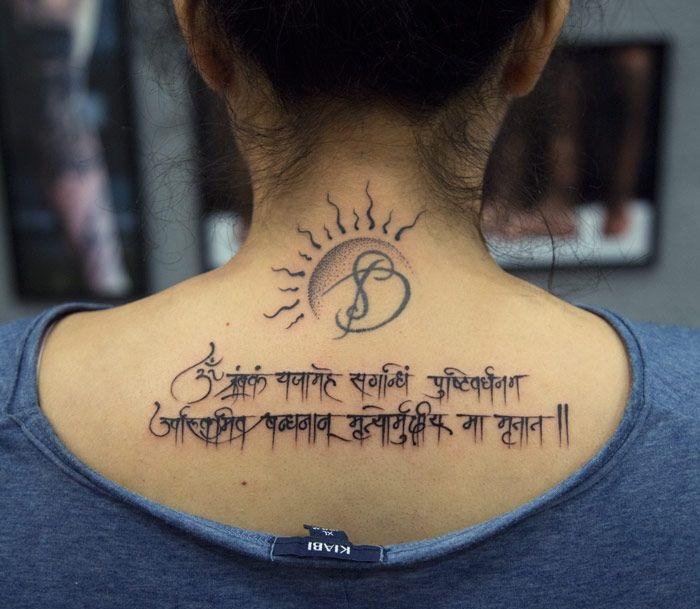 ॐ त्रंबकं यजामहे सगन्धिं पुष्टिवर्धनम
उर्वारुकमिव बन्धनान् मृत्योर्मुक्षीय मा मृतात ||
XL
KIABI